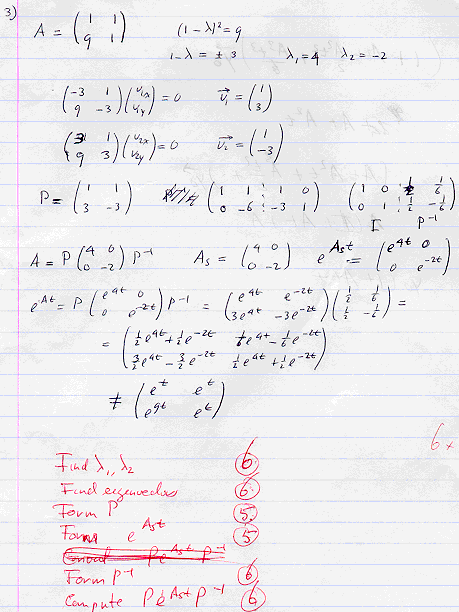 3)
A = (1 1; 9 1)   (1-λ)² = 9
1-λ = ±3   λ₁ = 4   λ₂ = -2
(-3 1; 9 -3)(v₁ₓ; v₁ᵧ) = 0   v₁ = (1; 3)
(3 1; 9 3)(v₂ₓ; v₂ᵧ) = 0   v₂ = (1; -3)
P = (1 1; 3 -3)   (1 1 ⋮ 1 0; 0 -6 ⋮ -3 1)   (1 0 ⋮ 1/2 1/6; 0 1 ⋮ 1/2 -1/6)
I   P⁻¹
A = P(4 0; 0 -2)P⁻¹   A_s = (4 0; 0 -2)   e^{A_s t} = (e^{4t} 0; 0 e^{-2t})
e^{At} = P(e^{4t} 0; 0 e^{-2t})P⁻¹ = (e^{4t} e^{-2t}; 3e^{4t} -3e^{-2t})(1/2 1/6; 1/2 -1/6) =
= (1/2 e^{4t} + 1/2 e^{-2t}   1/6 e^{4t} - 1/6 e^{-2t}; 3/2 e^{4t} - 3/2 e^{-2t}   1/2 e^{4t} + 1/2 e^{-2t})
≠ (e^t e^t; e^{9t} e^t)
Find λ₁, λ₂   6
Find eigenvectors   6
Form P   5
Form e^{A_s t}   5
Form P⁻¹   6
Compute P e^{A_s t} P⁻¹   6